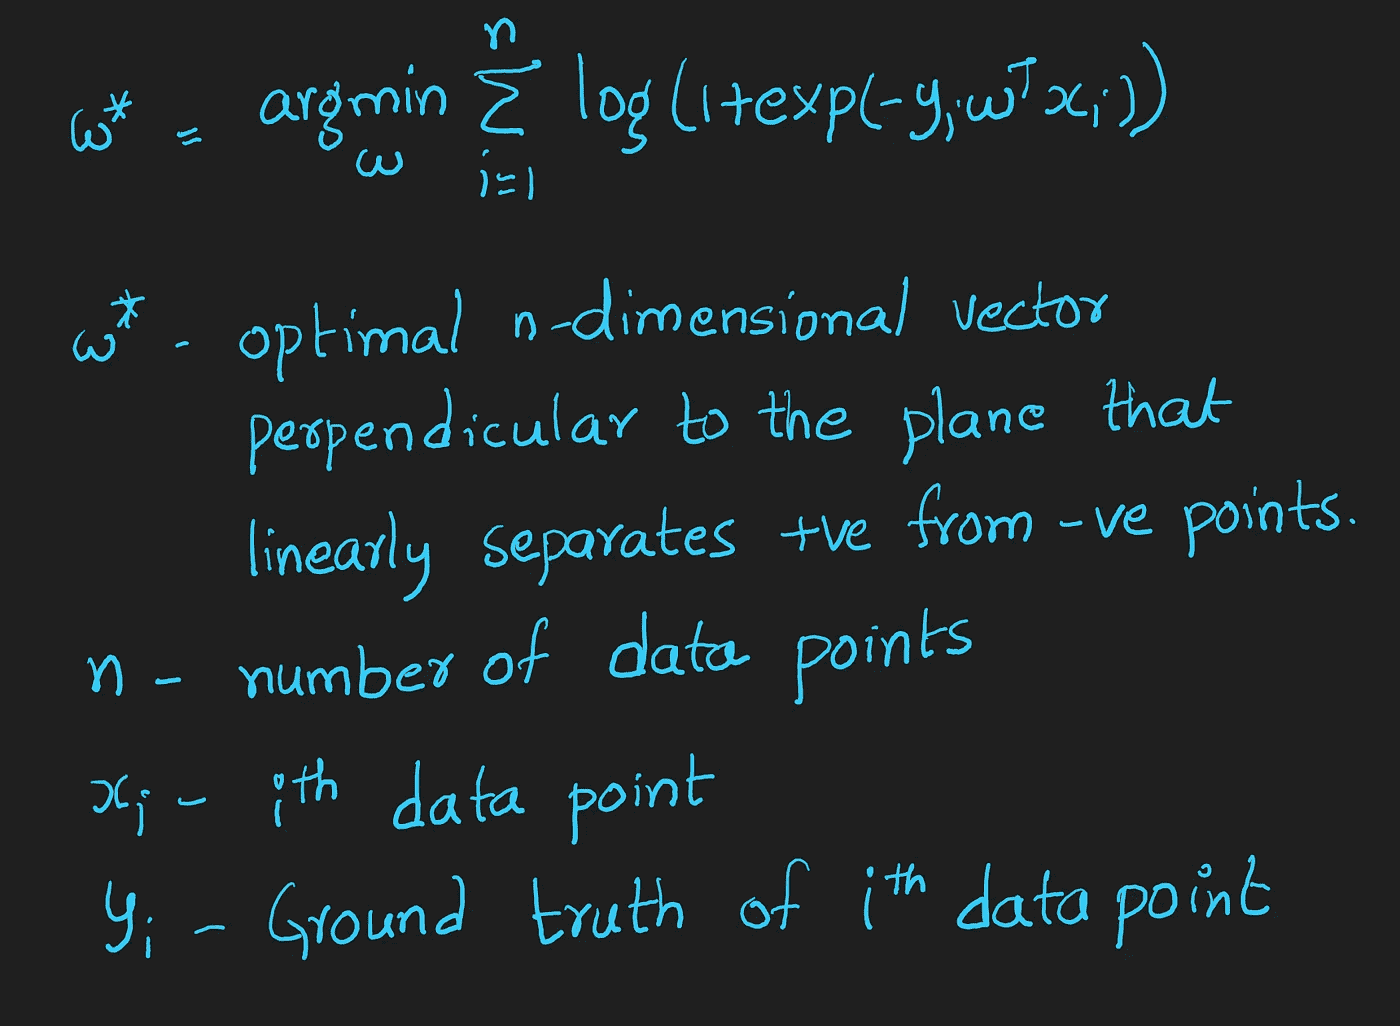 ω* = argmin_ω Σ_{i=1}^{n} log(1+exp(-y_i ω^T x_i))
ω* - optimal n-dimensional vector
perpendicular to the plane that
linearly separates +ve from -ve points.
n - number of data points
x_i - i^th data point
y_i - Ground truth of i^th data point